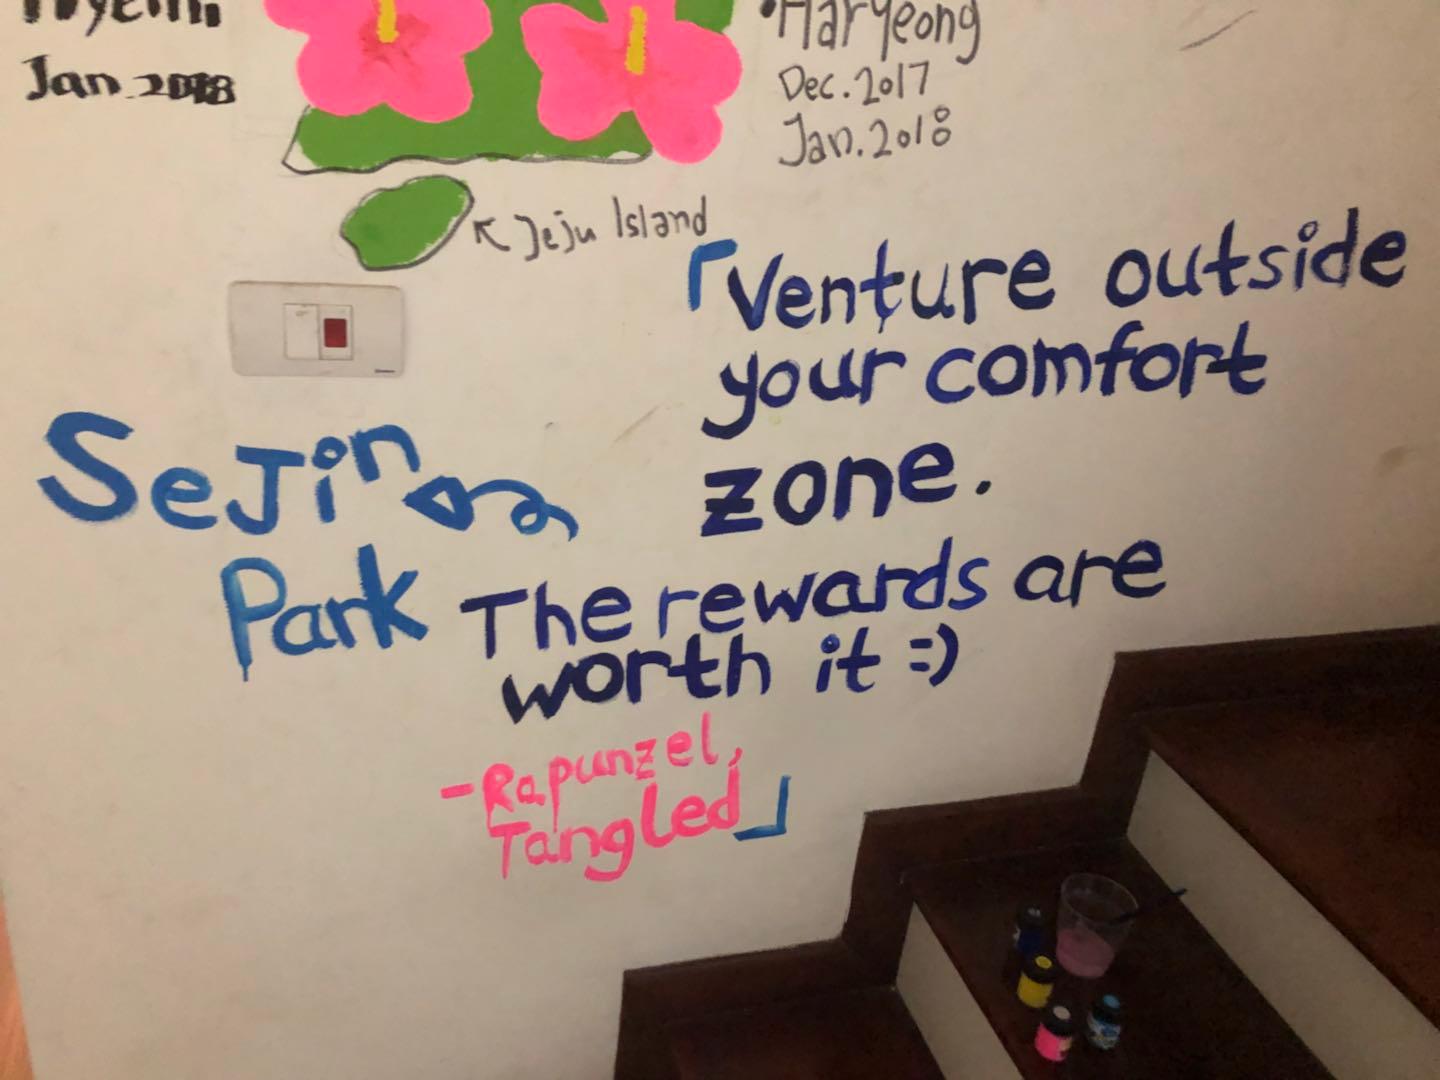 Jan. 2018
Haryeong
Dec. 2017
Jan. 2018
Jeju Island
「Venture outside
your comfort
zone.
SeJin
Park
The rewards are
worth it =)
-Rapunzel,
Tangled」